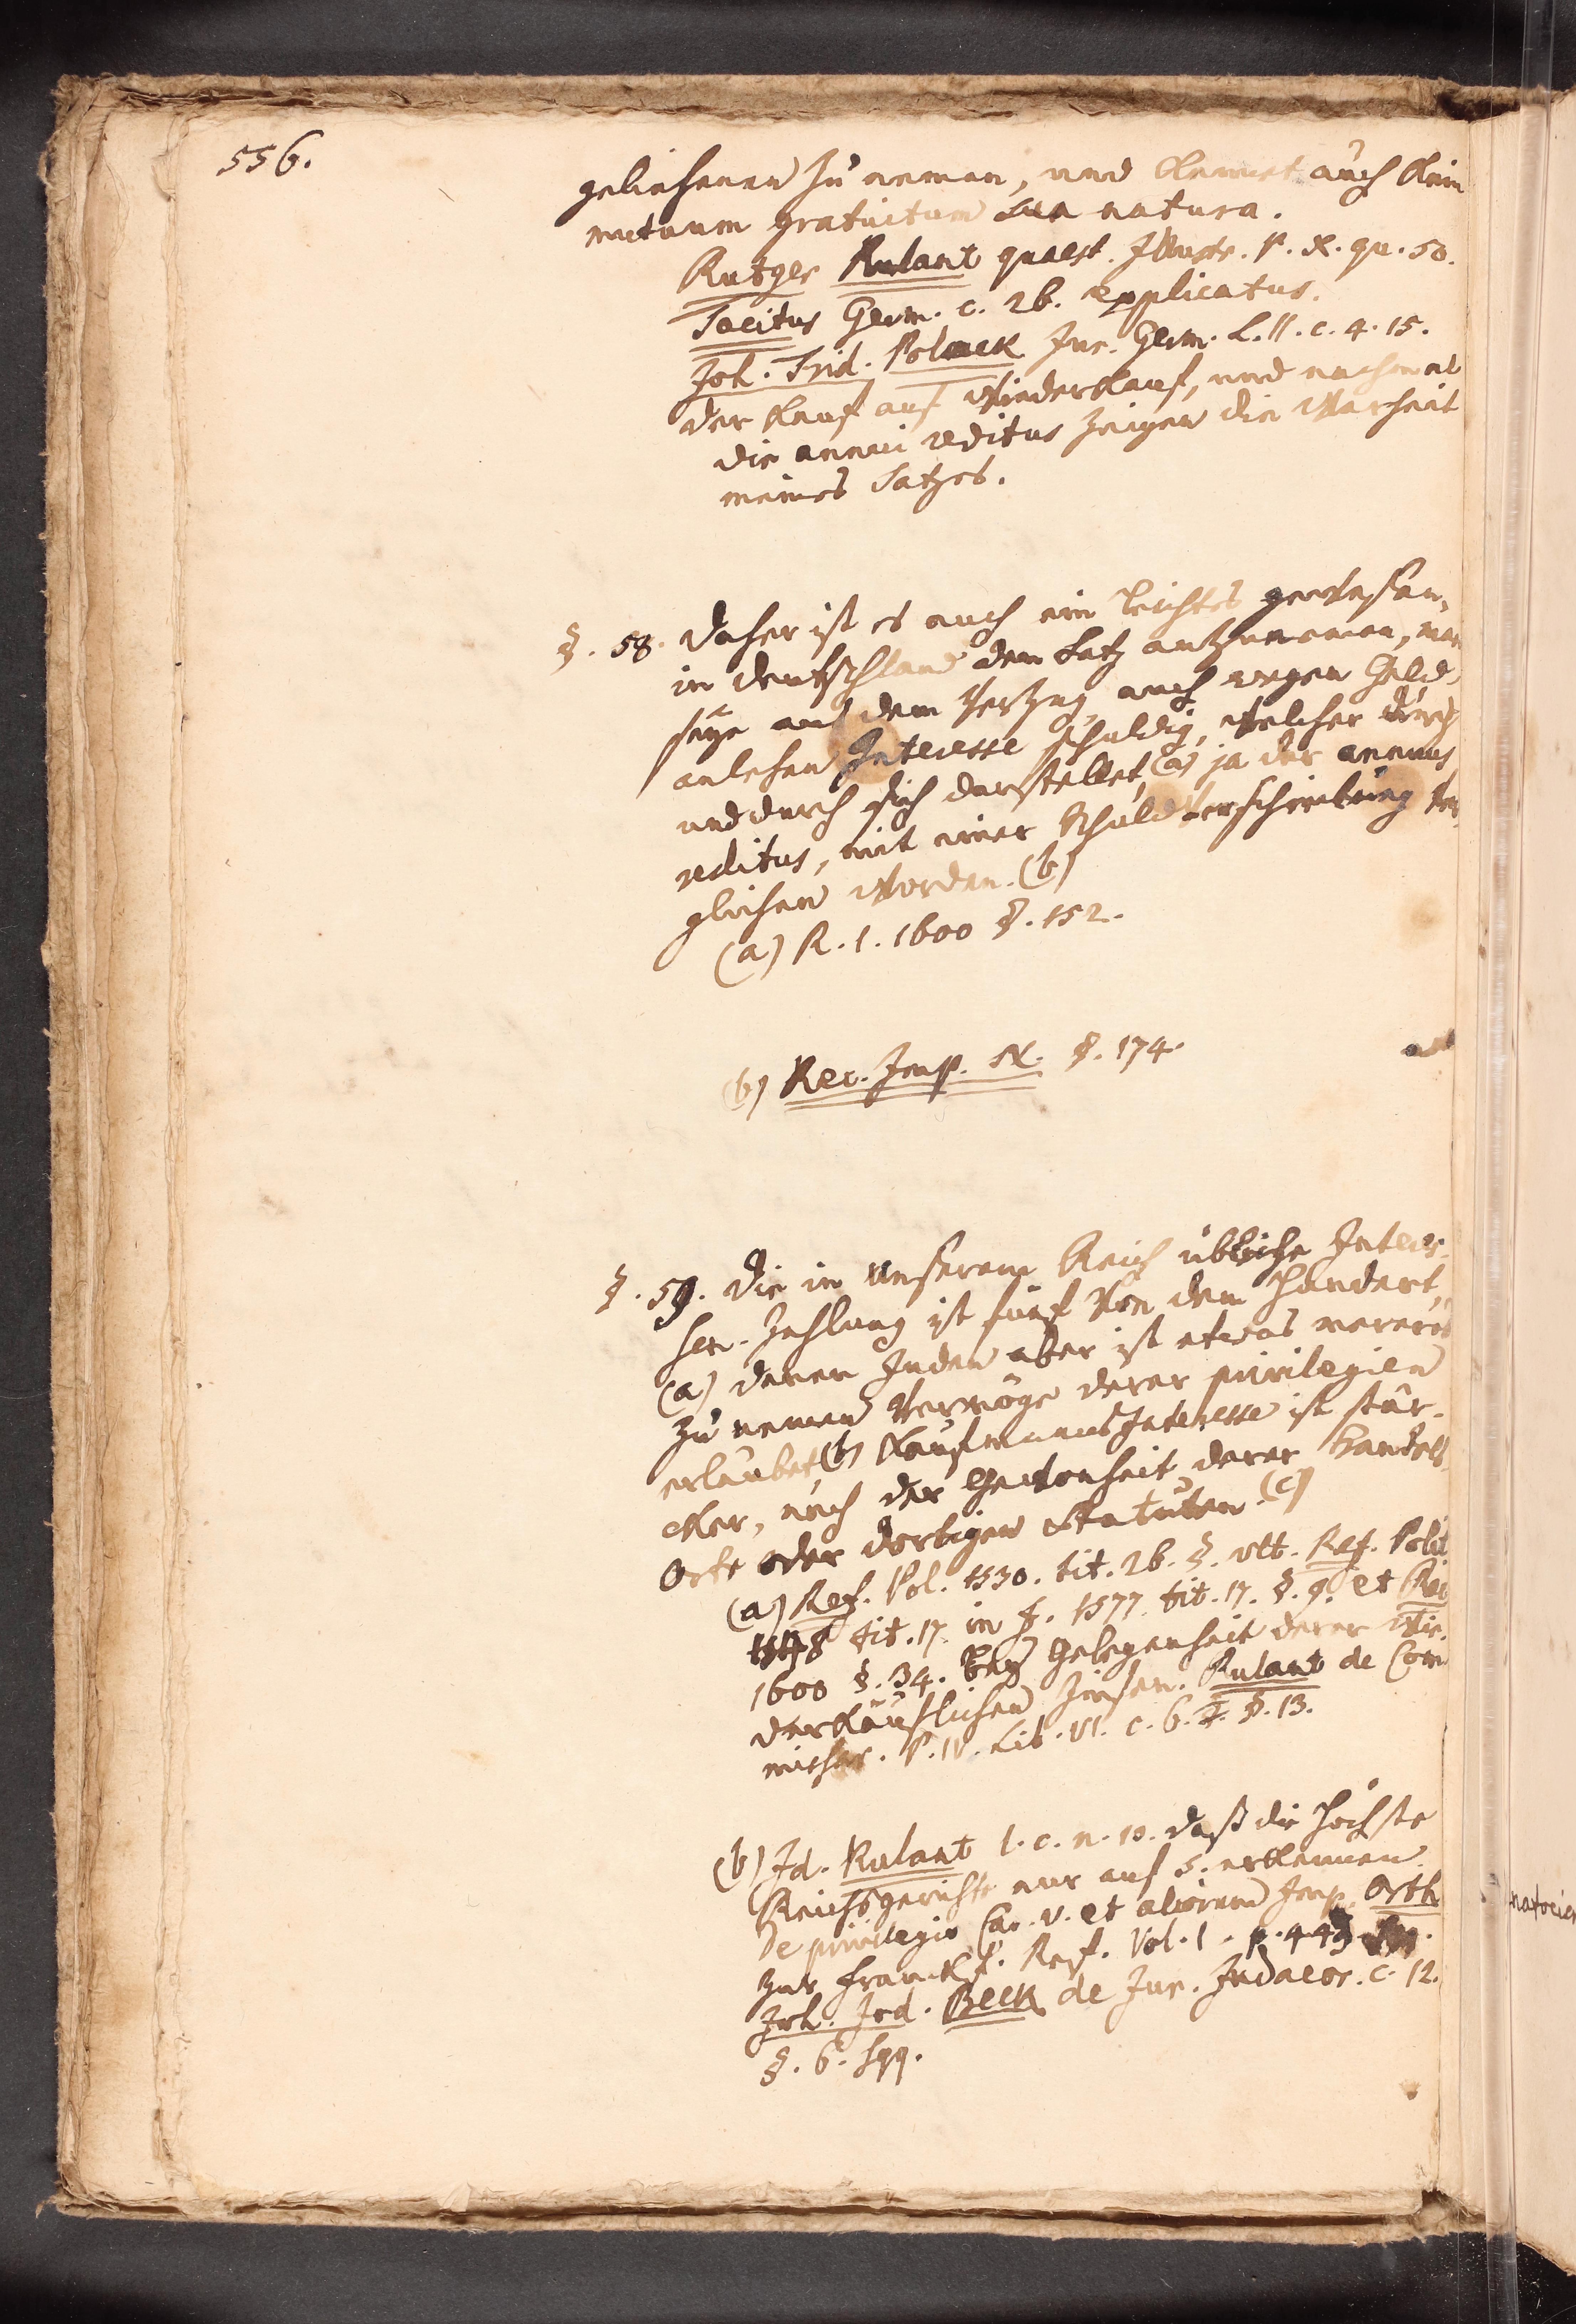 556.
geliehenen zu nemen, und kennet auch kein
mutuum gratuitum sua natura.
Rutger Rulant quaest. Illustr. P. X. qu. 50.
Tacitus Germ. c. 26. explicatus.
Joh. Frid. Polack Jur. Germ. L. II. c. 4. 15.
der Kauf auf Wiederkauf, und nachmal
die annui reditus zeigen die Warheit
meines Satzes.
§. 58. Daher ist es auch ein leichtes gewesen,
in Deutschland den Satz anzunemen, man
seye auf dem Verzug, auch wegen Geld
anlehen Interesse schuldig, welcher durch
und durch sich darstellet, (a) ja der annuus
reditus, mit einer Schuldverschreibung ver
glichen worden. (b)
(a) R. I. 1600 §. 152.
(b) Rec. Imp. N. §. 174.
§. 59. Die in unserem Reich übliche Interes
sen-Zahlung ist fünf von dem Hundert,
(a) denen Juden aber ist etwas mereres
zu nemen vermöge derer privilegien
erlaubet (b) Kaufmanns Interesse ist stär-
cker, nach der Gewonheit derer Handels
Orte oder dortigen Statuten. (c)
(a) Ref. Pol. 1530. tit. 26. §. ult. Ref. Polit
1548 tit. 17. in f. 1577 tit. 17. §. 9. et Rec
1600 §. 34. bey Gelegenheit derer Wie-
derkäuflichen Zinsen. Rulant de Com
missar. P. IV. Lib. VI. c. 6. §. 13.
(b) Id. Rulant l. c. n. 10. daß die höchste
Reichsgerichte nur auf 5. erkennen.
De privilegio Car. V. et aliorum Imp. Orth
zur Franckf. Ref. Vol. I. p. 443 sqq.
Joh. Jod. Beck de Jur. Judaeor. c. 12.
§. 6. sqq.